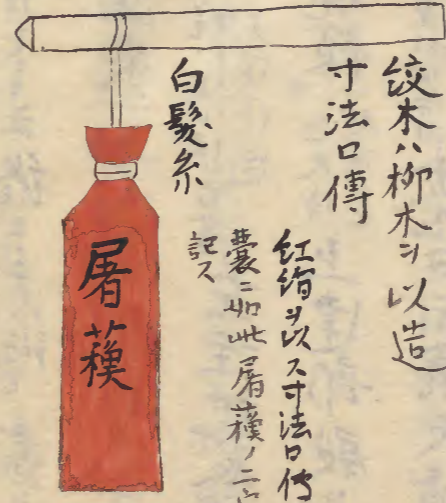 絞木ハ柳木ヲ以造
寸法口傳
白髪糸
紅絹ヲ以ス寸法口傳
嚢ニ如此屠蘓ノ二
記ス
屠蘓